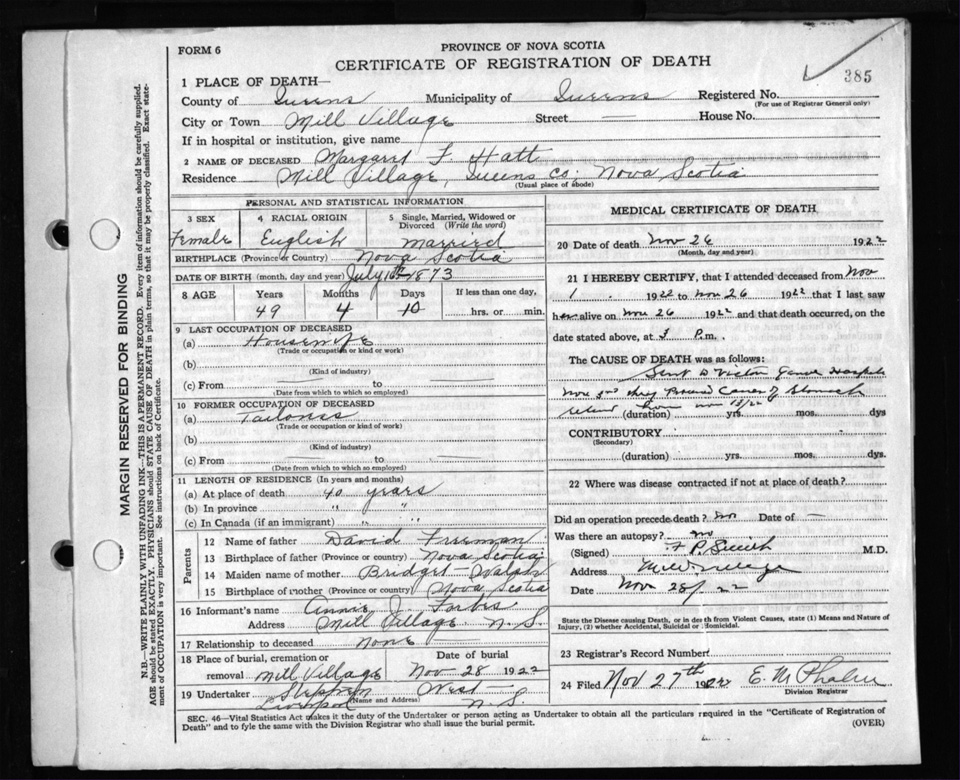 FORM 6
PROVINCE OF NOVA SCOTIA
CERTIFICATE OF REGISTRATION OF DEATH
385
1 PLACE OF DEATH—
County of Queens Municipality of Queens Registered No.
(For use of Registrar General only)
City or Town Mill Village Street — House No.
If in hospital or institution, give name
2 NAME OF DECEASED Margaret F. Hatt
Residence Mill Village, Queens Co; Nova Scotia
(Usual place of abode)
MARGIN RESERVED FOR BINDING
N.B.—WRITE PLAINLY WITH UNFADING INK—THIS IS A PERMANENT RECORD. Every item of information should be carefully supplied.
AGE should be stated EXACTLY. PHYSICIANS should STATE CAUSE OF DEATH in plain terms, so that it may be properly classified. Exact state-
ment of OCCUPATION is very important. See instructions on back of Certificate.
PERSONAL AND STATISTICAL INFORMATION
3 SEX
Female
4 RACIAL ORIGIN
English
5 Single, Married, Widowed or
Divorced (Write the word)
Married
BIRTHPLACE (Province or Country) Nova Scotia
DATE OF BIRTH (month, day and year) July 16th 1873
8 AGE Years Months Days If less than one day,
49 4 10 hrs. or min.
9 LAST OCCUPATION OF DECEASED
(a) Housewife
(Trade or occupation or kind or work)
(b)
(Kind of industry)
(c) From — to —
(Date from which to which so employed)
10 FORMER OCCUPATION OF DECEASED
(a) Tailoress
(Trade or occupation or kind of work)
(b)
(Kind of industry)
(c) From — to —
(Date from which to which so employed)
11 LENGTH OF RESIDENCE (In years and months)
(a) At place of death 40 years
(b) In province " "
(c) In Canada (if an immigrant) " "
Parents
12 Name of father David Freeman
13 Birthplace of father (Province or country) Nova Scotia
14 Maiden name of mother Bridget Walsh
15 Birthplace of mother (Province or country) Nova Scotia
16 Informant's name Annie J. Forbes
Address Mill Village N.S.
17 Relationship to deceased None
18 Place of burial, cremation or Date of burial
removal Mill Village Nov 28 1922
19 Undertaker Stephen West
(Name and Address)
Liverpool N.S.
MEDICAL CERTIFICATE OF DEATH
20 Date of death Nov 26 1922
(Month, day and year)
21 I HEREBY CERTIFY, that I attended deceased from Nov
1 1922 to Nov 26 1922 that I last saw
her alive on Nov 26 1922 and that death occurred, on the
date stated above, at 3 P.m.
The CAUSE OF DEATH was as follows:
Sent to Victoria Hospital
they found Cancer of Stomach
(duration) yrs. mos. dys
CONTRIBUTORY
(Secondary)
(duration) yrs. mos. dys.
22 Where was disease contracted if not at place of death?
Did an operation precede death? no Date of —
Was there an autopsy? no
(Signed) F P Smith M.D.
Address Mill Village
Date Nov 28/22
State the Disease causing Death, or in death from Violent Causes, state (1) Means and Nature of
Injury, (2) whether Accidental, Suicidal or Homicidal.
23 Registrar's Record Number
24 Filed Nov 27th 1922 E. M
Division Registrar
SEC. 46—Vital Statistics Act makes it the duty of the Undertaker or person acting as Undertaker to obtain all the particulars required in the "Certificate of Registration of
Death" and to fyle the same with the Division Registrar who shall issue the burial permit.
(OVER)